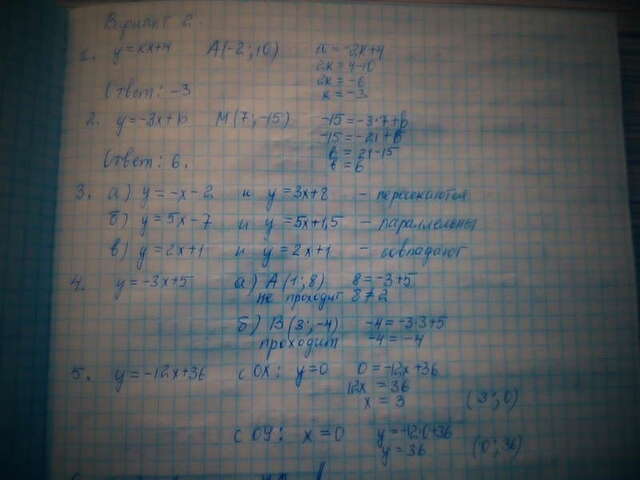 Вариант 2.
1. y = kx+4 A(-2; 10) 10 = -2k+4
2k = 4-10
2k = -6
Ответ: -3 k = -3
2. y = -3x+b M(7; -15) -15 = -3·7+b
-15 = -21+b
b = 21-15
Ответ: 6. b = 6
3. а) y = -x-2 и y = 3x+8 - пересекаются
б) y = 5x-7 и y = 5x+1,5 - параллельны
в) y = 2x+1 и y = 2x+1 - совпадают
4. y = -3x+5 а) A(1; 8) 8 = -3+5
не проходит 8≠2
б) B(3; -4) -4 = -3·3+5
проходит -4 = -4
5. y = -12x+36 с OX: y=0 0 = -12x+36
12x = 36
x = 3 (3; 0)
с OY: x=0 y = -12·0+36
y = 36 (0; 36)